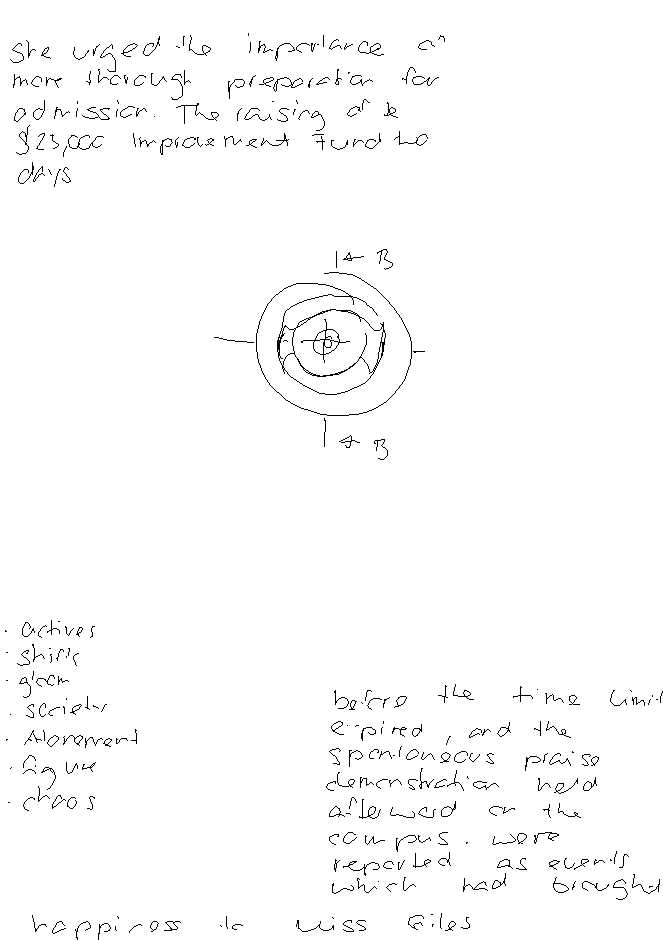 She urged the importance on
more thorough preparation for
admission. The raising of
$25,000 Improvement Fund two
days
B
B
· actives
· shirk
· gloom
· society
· Atonement
· figure
· chaos
before the time limit
expired, and the
spontaneous praise
demonstration held
afterward on the
campus. were
reported as events
which had brought
happiness to Miss Giles